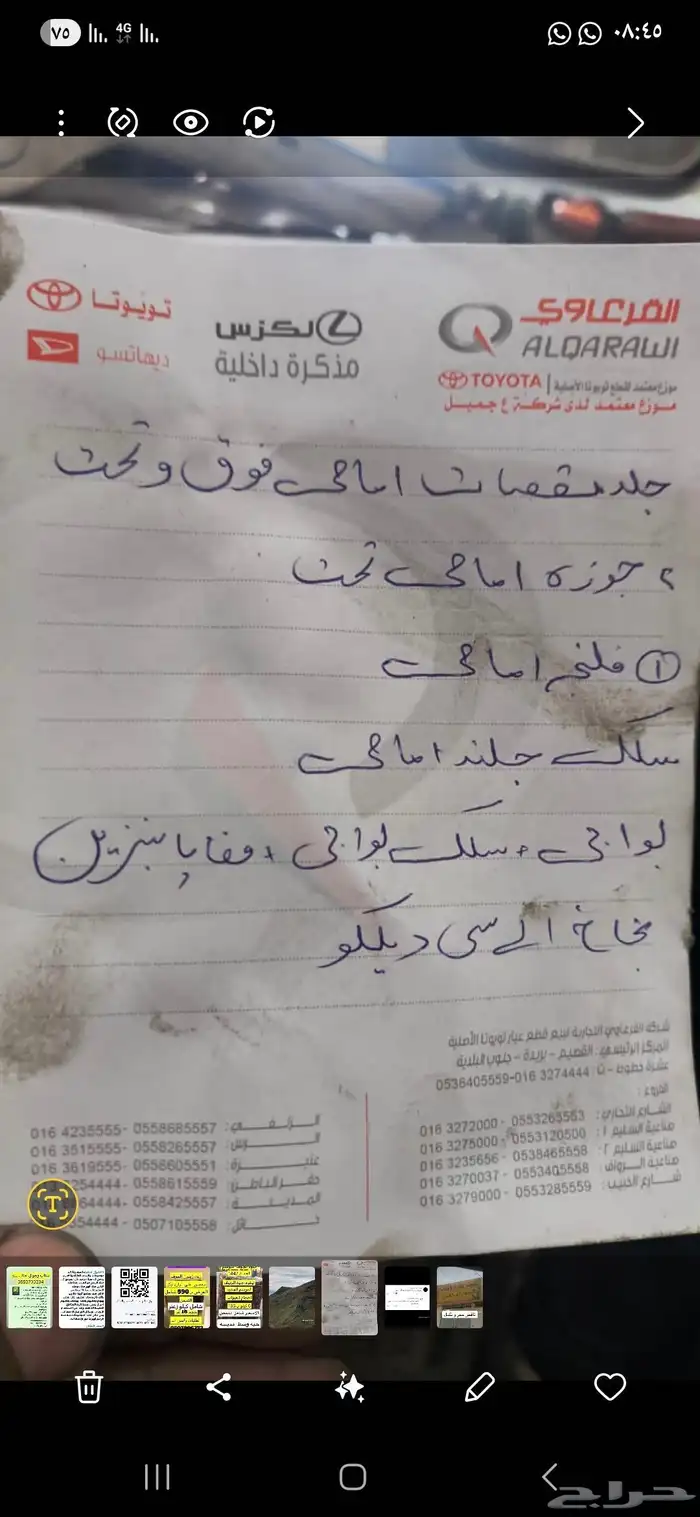 ٧٥
4G
٠٨:٤٥
القرعاوي
ALQARAWI
TOYOTA
موزع معتمد لقطع تويوتا الأصلية
موزع معتمد لدى شركة ع جميل
لكزس
مذكرة داخلية
تويوتا
ديهاتسو
جلد مقصات امامي فوق وتحت
٢ جوزه امامي تحت
١ فلنجه امامي
سلك جلند امامي
لواجي + سلك لواجي + دفايا بنزين
بخاخ الـ سي ديكلو
شركة القرعاوي التجارية لبيع قطع غيار تويوتا الأصلية
المركز الرئيسي: القصيم - بريدة - جنوب البلدية
عشرة خطوط - ت: 3274444 016-0536405559
الفروع:
الشارع التجاري: 0553263553 - 3272000 016
صناعية السليم ١: 0553120500 - 3275000 016
صناعية السليم ٢: 0538465558 - 3235656 016
صناعية الرواف: 0553405558 - 3270037 016
شارع الخبيب: 0553285559 - 3279000 016
الزلفي: 0558685557 - 4235555 016
الرس: 0558265557 - 3515555 016
عنيزة: 0558605551 - 3619555 016
حفر الباطن: 0558615559 - 254444
المدينة: 0558425557 - 64444
حائل: 0507105558 - 354444
T
حراج